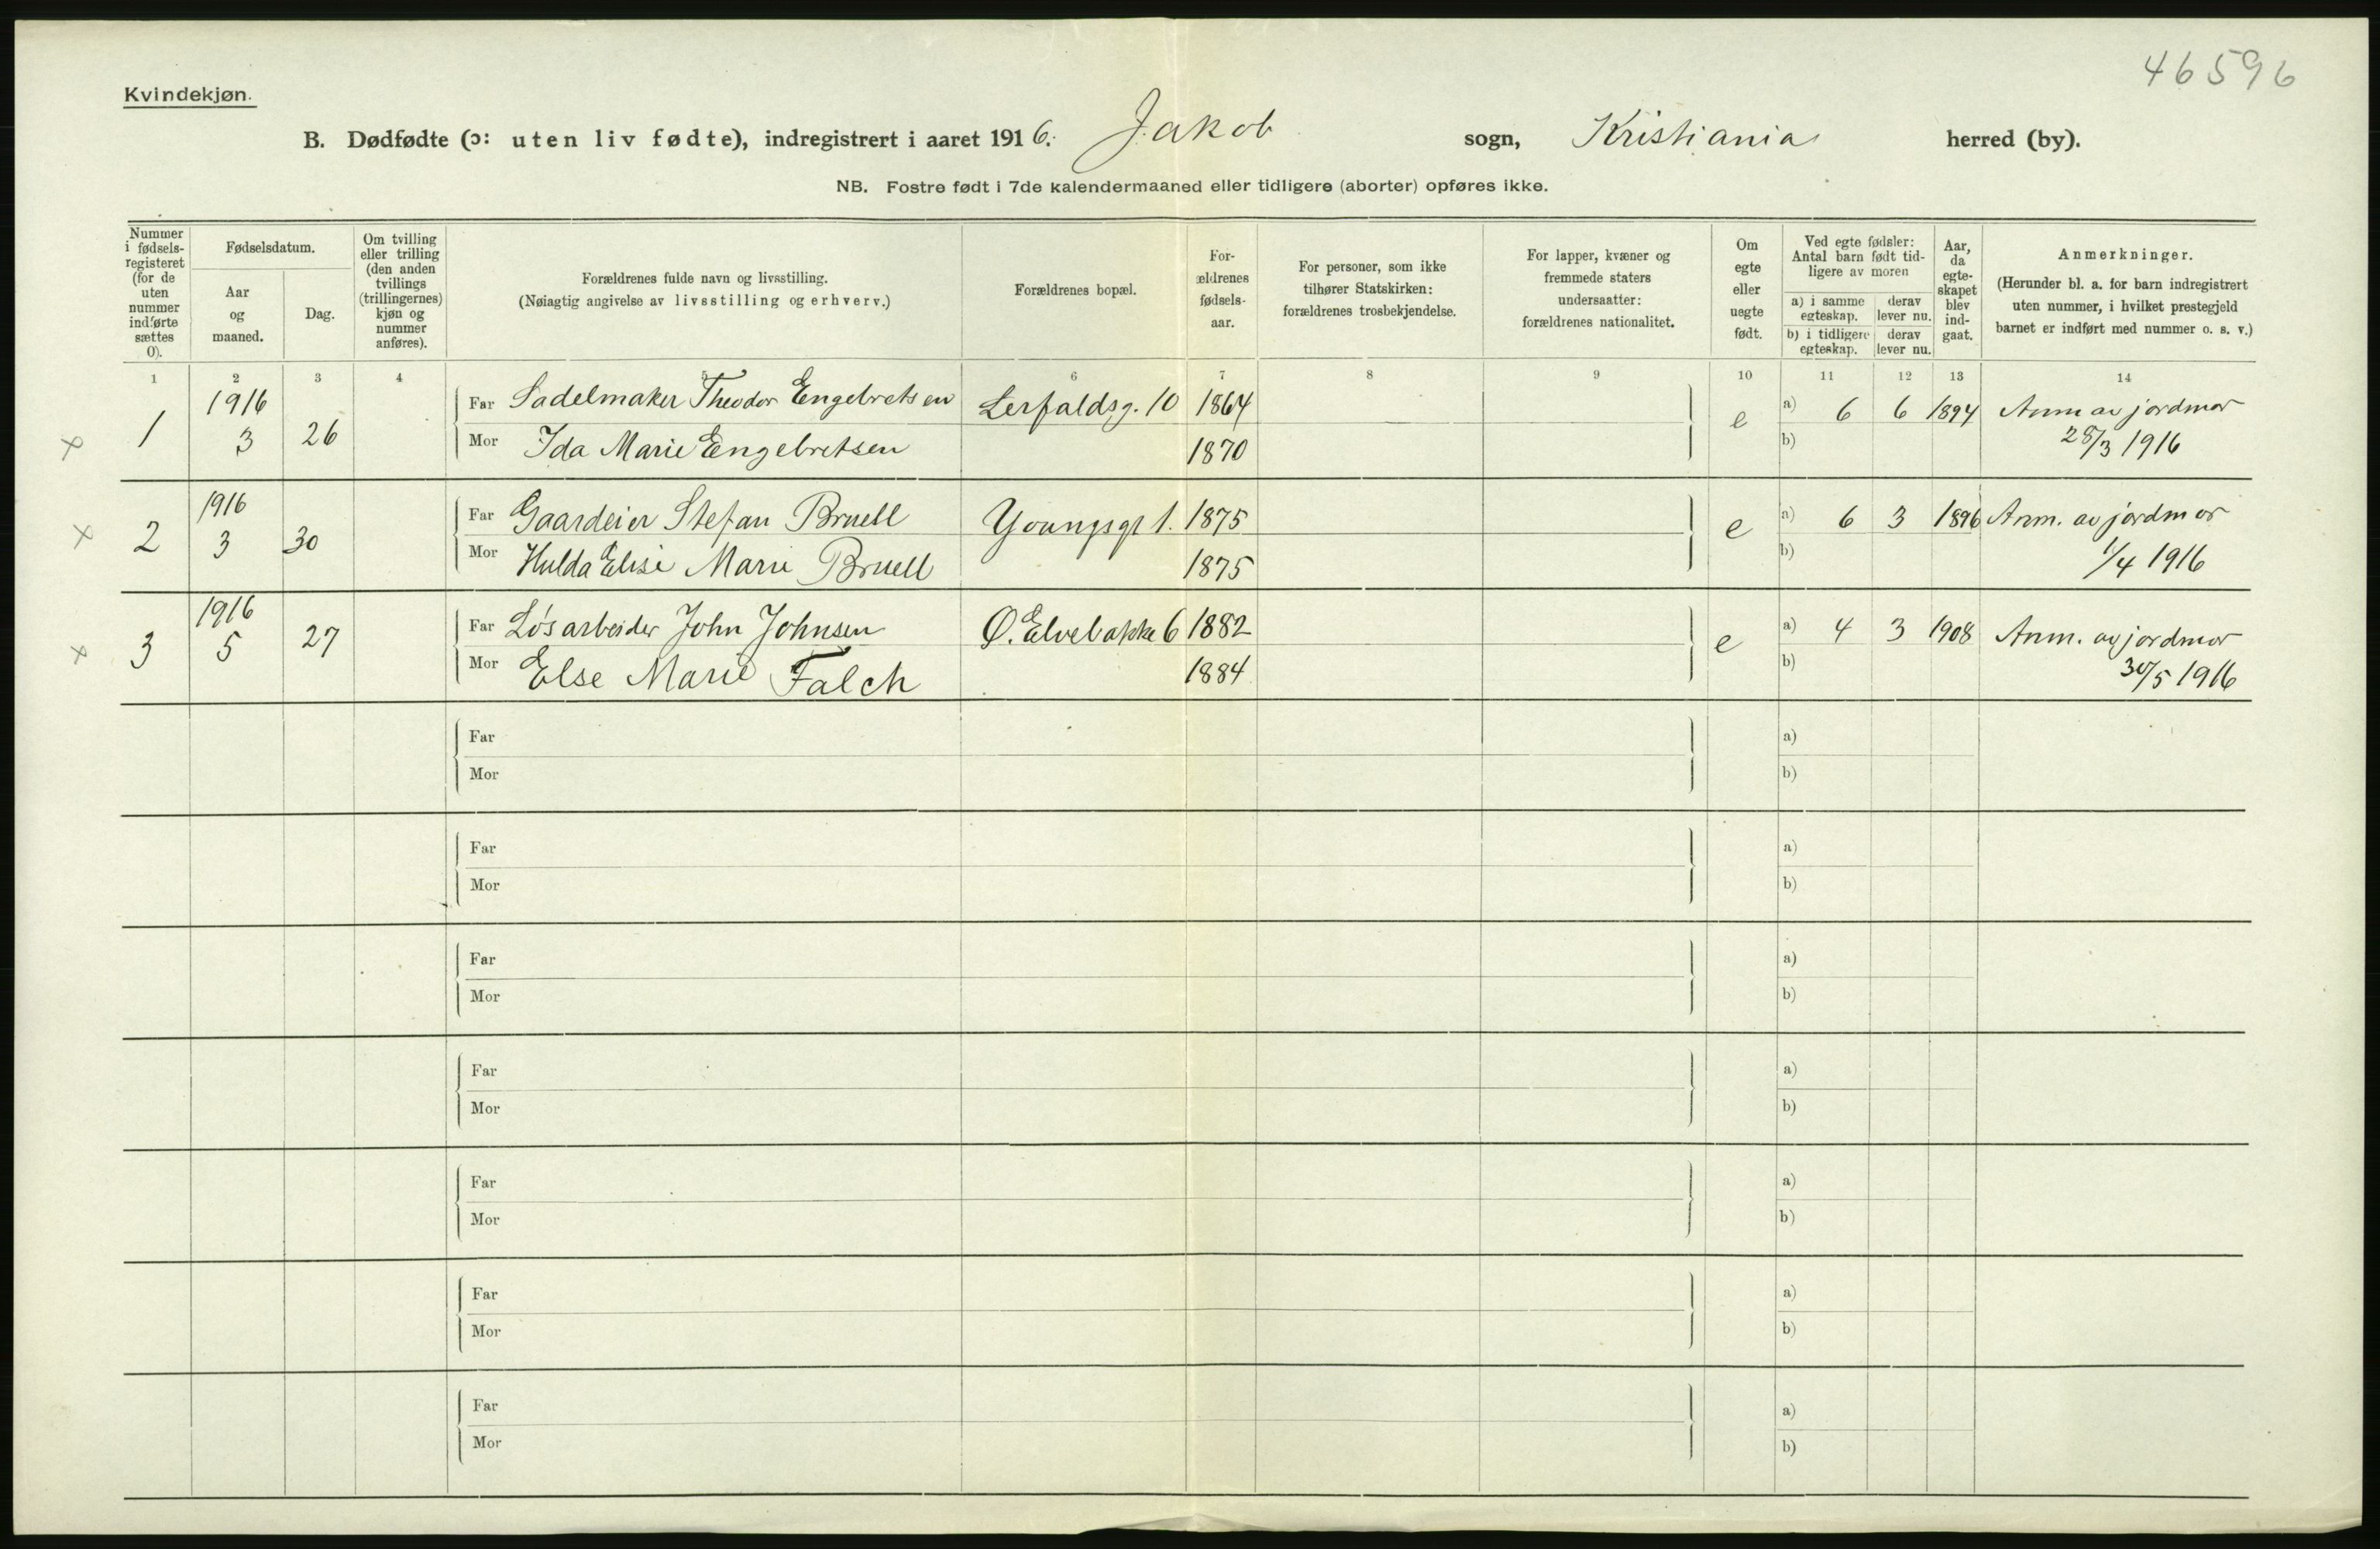 46596
Kvindekjøn.
B. Dødfødte (ɔ: uten liv fødte), indregistrert i aaret 1916. Jakob sogn, Kristiania herred (by).
NB. Fostre født i 7de kalendermaaned eller tidligere (aborter) opføres ikke.
Nummer
i fødsels-
registeret
(for de
uten
nummer
indførte
sættes
0).
Fødselsdatum.
Aar
og
maaned.
Dag.
Om tvilling
eller trilling
(den anden
tvillings
(trillingernes)
kjøn og
nummer
anføres).
Forældrenes fulde navn og livsstilling.
(Nøiagtig angivelse av livsstilling og erhverv.)
Forældrenes bopæl.
For-
ældrenes
fødsels-
aar.
For personer, som ikke
tilhører Statskirken:
forældrenes trosbekjendelse.
For lapper, kvæner og
fremmede staters
undersaatter:
forældrenes nationalitet.
Om
egte
eller
uegte
født.
Ved egte fødsler:
Antal barn født tid-
ligere av moren
a) i samme egteskap.
derav lever nu.
b) i tidligere egteskap.
derav lever nu.
Aar,
da
egte-
skapet
blev
ind-
gaat.
Anmerkninger.
(Herunder bl. a. for barn indregistrert
uten nummer, i hvilket prestegjeld
barnet er indført med nummer o. s. v.)
1 2 3 4 5 6 7 8 9 10 11 12 13 14
1916
Far Sadelmaker Theodor Engebretsen Lerfaldsg. 10 1864 a) 6 6 1894 Anm av jordmor
x 1 3 26 e
Mor Ida Marie Engebretsen 1870 b) 28/3 1916
1916
Far Gaardeier Stefan Bruell Youngsgt 1. 1875 a) 6 3 1896 Anm. av jordmor
x 2 3 30 e
Mor Hulda Elise Marie Bruell 1875 b) 1/4 1916
1916
Far Løsarbeider John Johnsen Ø. Elvebakke 6 1882 a) 4 3 1908 Anm. av jordmor
x 3 5 27 e
Mor Else Marie Falch 1884 b) 30/5 1916
Far a)
Mor b)
Far a)
Mor b)
Far a)
Mor b)
Far a)
Mor b)
Far a)
Mor b)
Far a)
Mor b)
Far a)
Mor b)